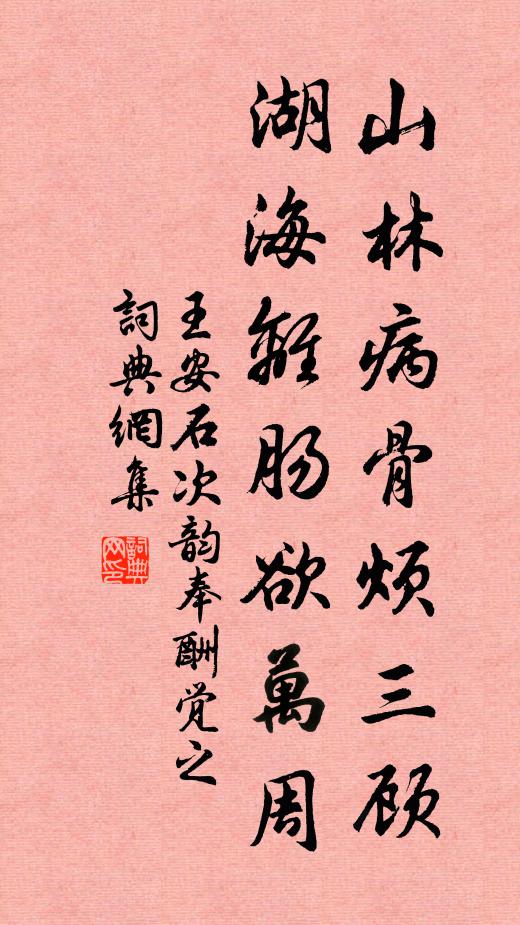 山林病骨烦三顾
湖海離肠欲萬周
王安石次韵奉酬觉之
詞典網集
詞典网印